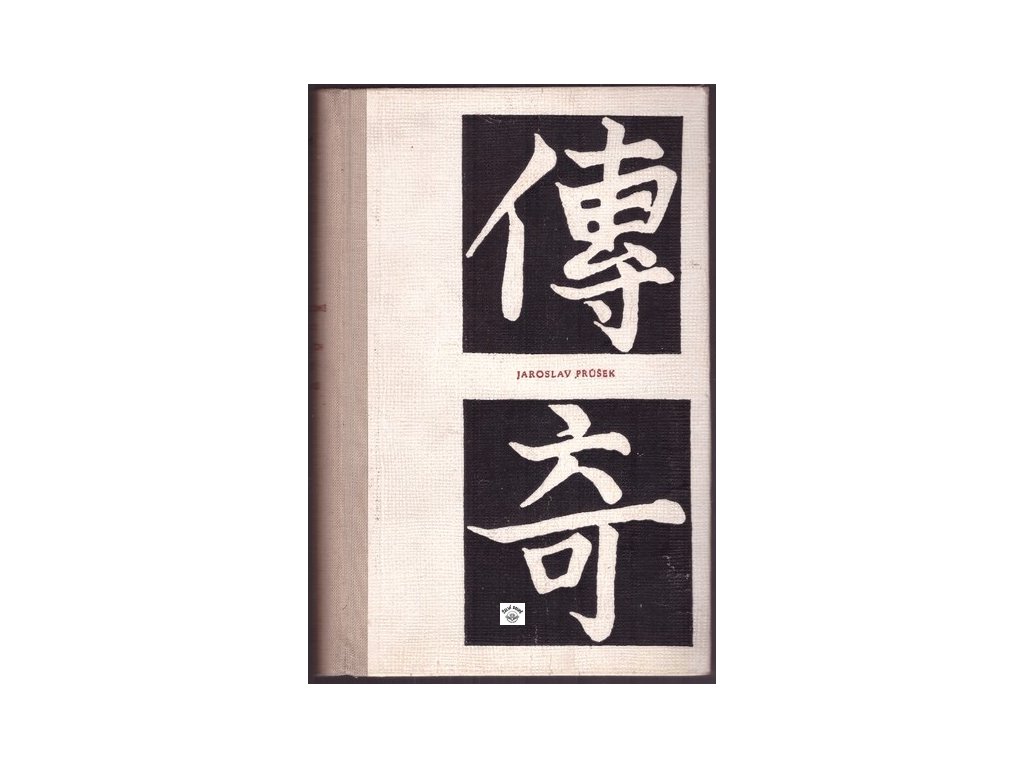 傳
JAROSLAV PRŮŠEK
奇